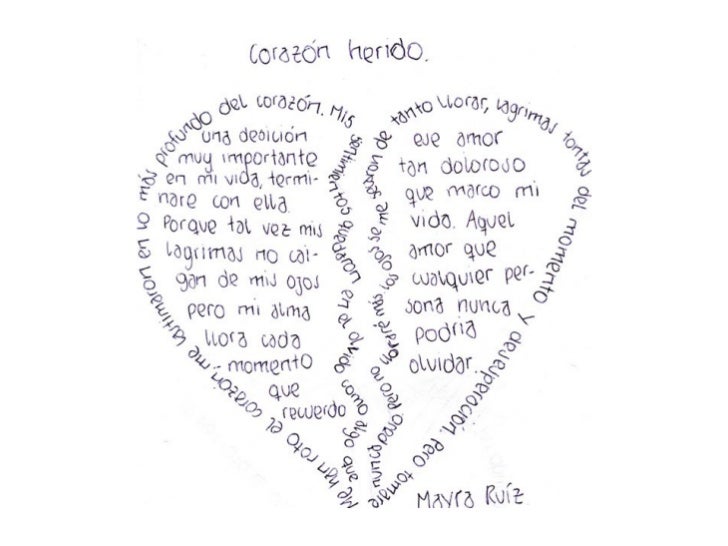 Corazón herido.
Me han roto el corazón, me lastimaron en lo más profundo del corazón. Mis sentimientos quedaron en el olvido como algo que
nunca paso pero no lloraré mis ojos se me secaron de tanto llorar, lagrimas tontas del momento y desesperación. Pero tomare
una desición
muy importante
en mi vida, termi-
nare con ella.
Porque tal vez mis
lagrimas no cai-
gan de mis ojos
pero mi alma
llora cada
momento
que
recuerdo
ese amor
tan doloroso
que marco mi
vida. Aquel
amor que
cualquier per-
sona nunca
podria
olvidar.
Mayra Ruíz